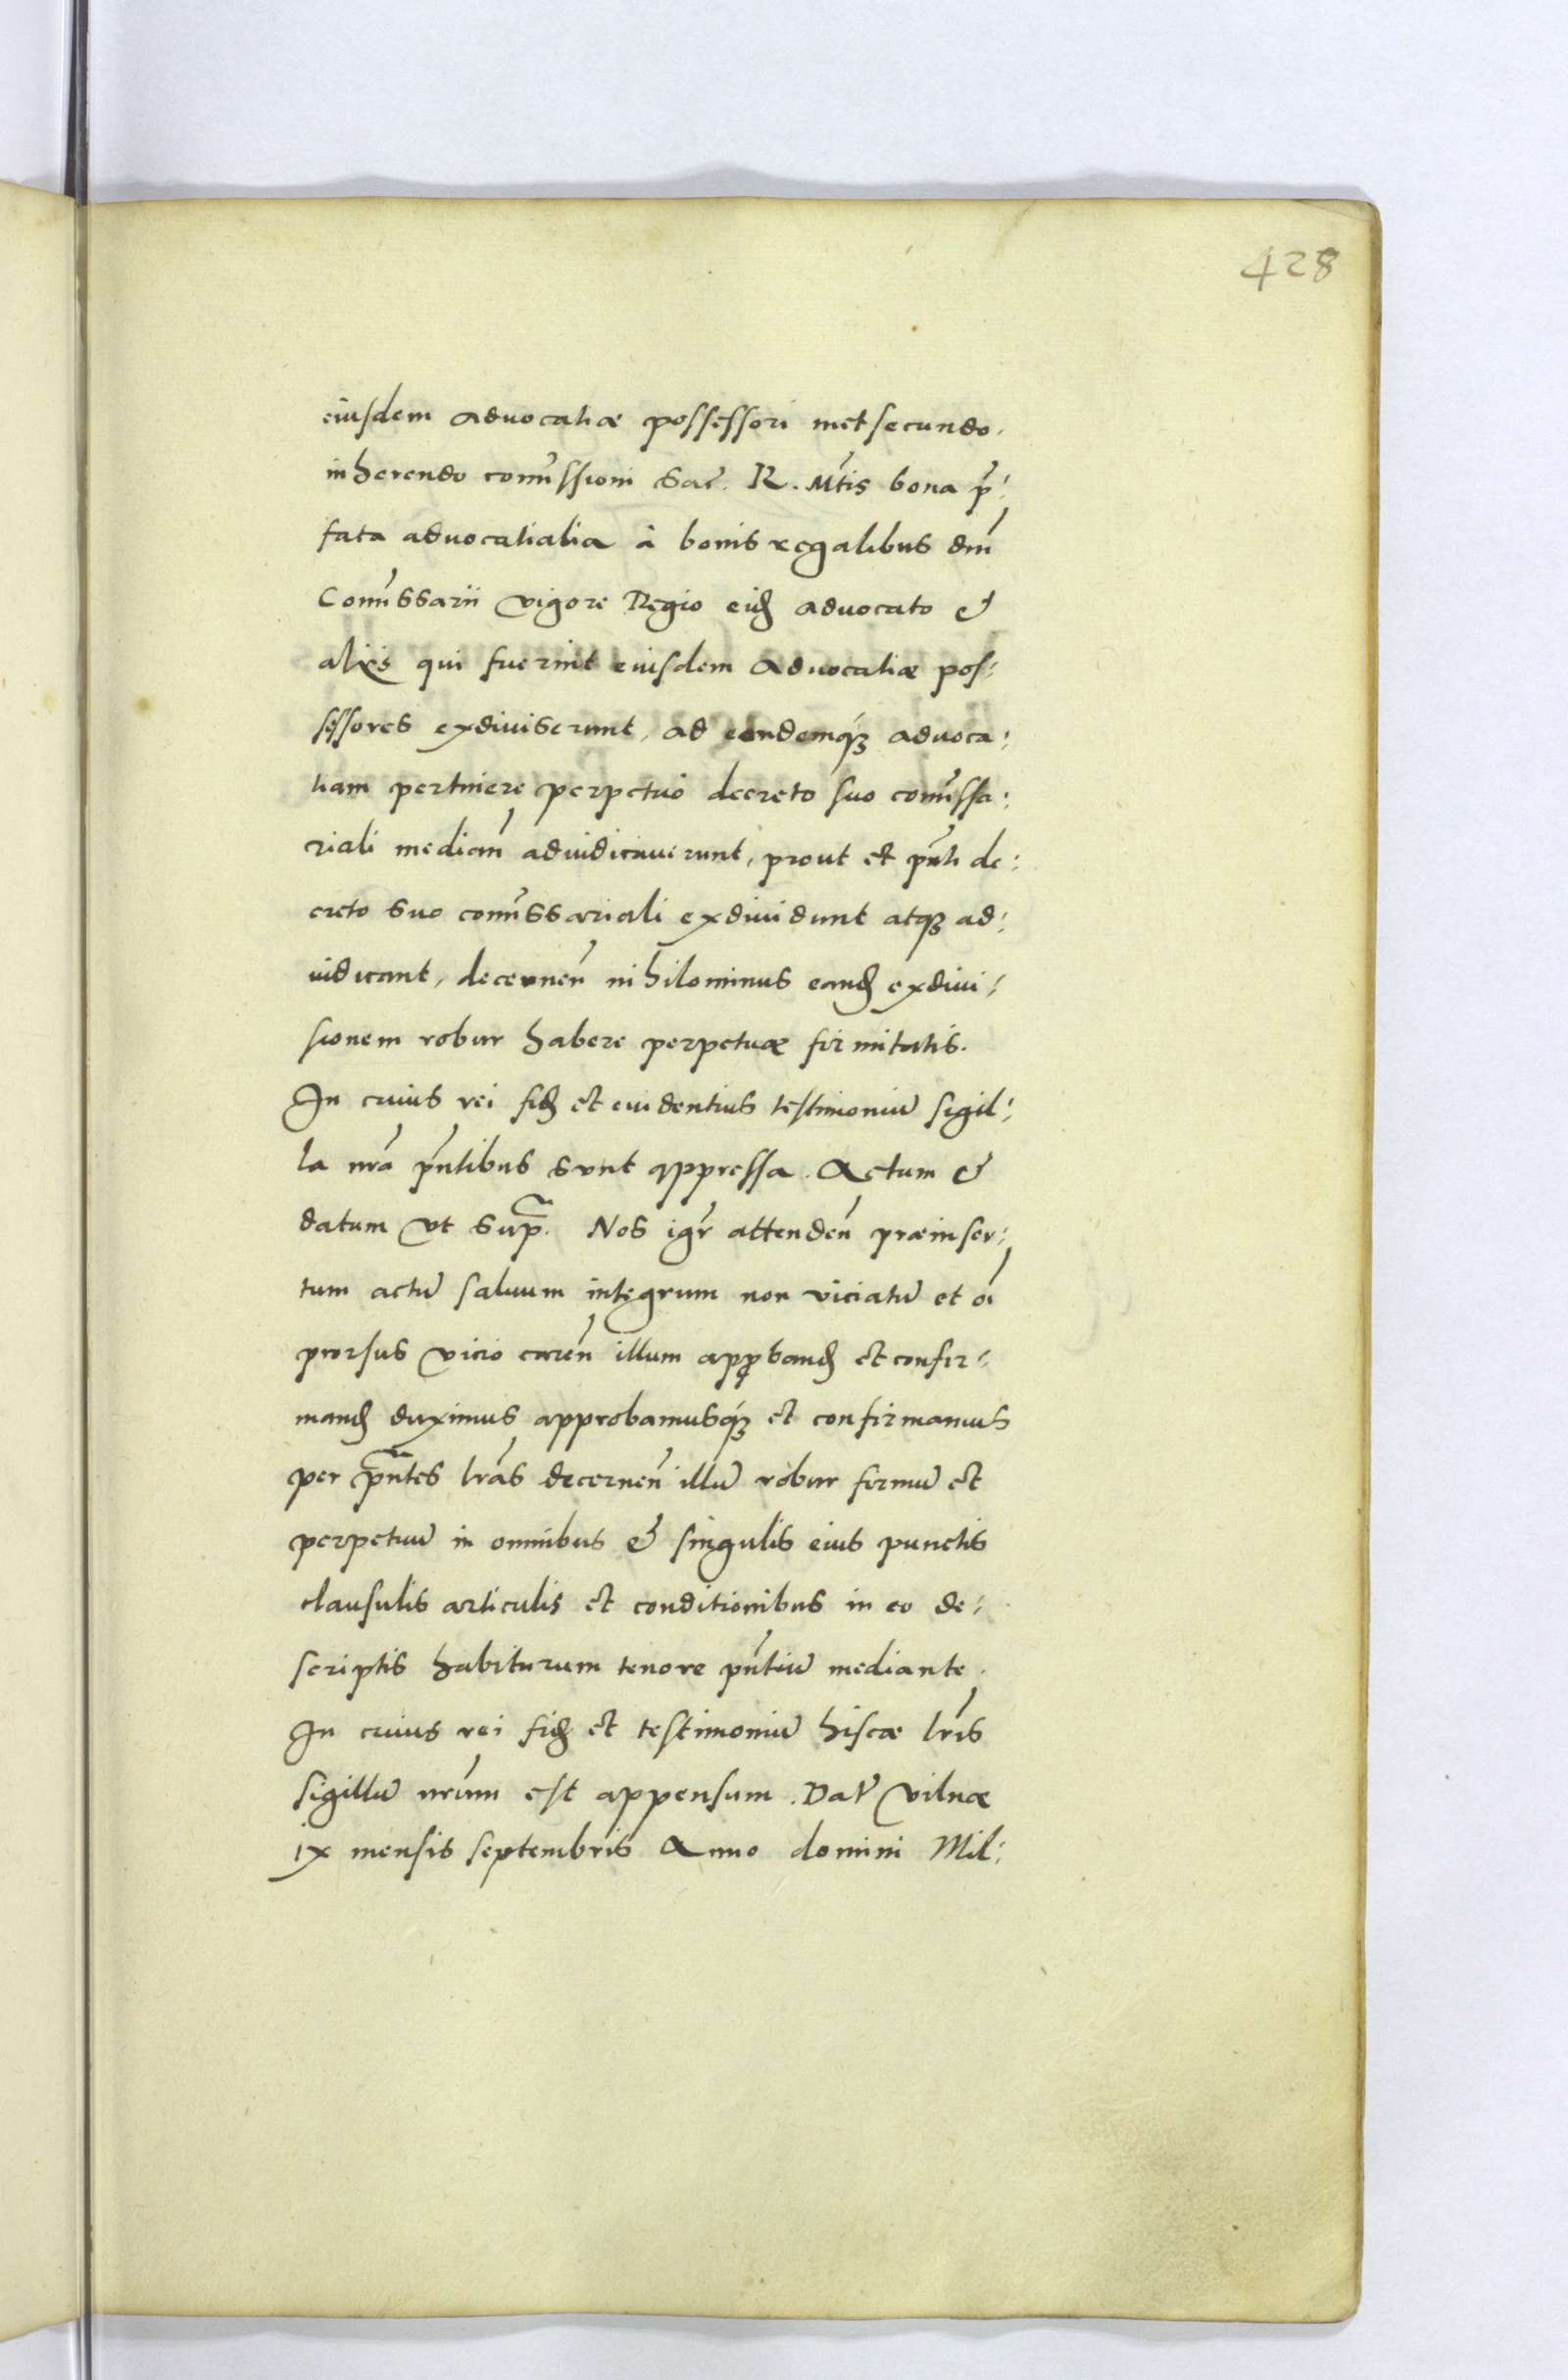 428
eiusdem aduocatiæ possessori metsecundo.
inherendo com̃issioni Sac̃. R. Mt̃is bona p̃:
fata aduocatialia à bonis regalibus dñi
Com̃issarii vigore Regio eid̃ aduocato &
aliis qui fuerint eiusdem Aduocatiæ pos:
sessores exdiuiserunt, ad eandemq́ꝫ aduoca:
tiam pertinere perpetuo decreto suo com̃issa:
riali median̄ adiudicauerunt, prout et pñti de:
creto suo com̃issariali exdiuidunt atqꝫ ad:
iudicant, decernen̄ nihilominus eand̃ exdiui:
sionem robur habere perpetuæ firmitatis.
In cuius rei fid̃ et euidentius testimoniū sigil:
la nrã pñtibus sunt appressa. Actum &
datum vt sup̃. Nos igr̃ attenden̄ præinser:
tum actū saluum integrum non viciatū et oĩ
prorsus vicio caren̄ illum apꝓband̃ et confir:
mand̃ duximus approbamusq́ꝫ et confirmamus
per p̃ntes lrãs decernen̄ illū robur firmū et
perpetuū in omnibus & singulis eius punctis
clausulis articulis et conditionibus in eo de:
scriptis habiturum tenore pñtiū mediante.
In cuius rei fid̃ et testimoniū hisce lrĩs
sigillū nrũm est appensum. Dat̃ Vilnæ
ix mensis septembris Anno domini Mil: